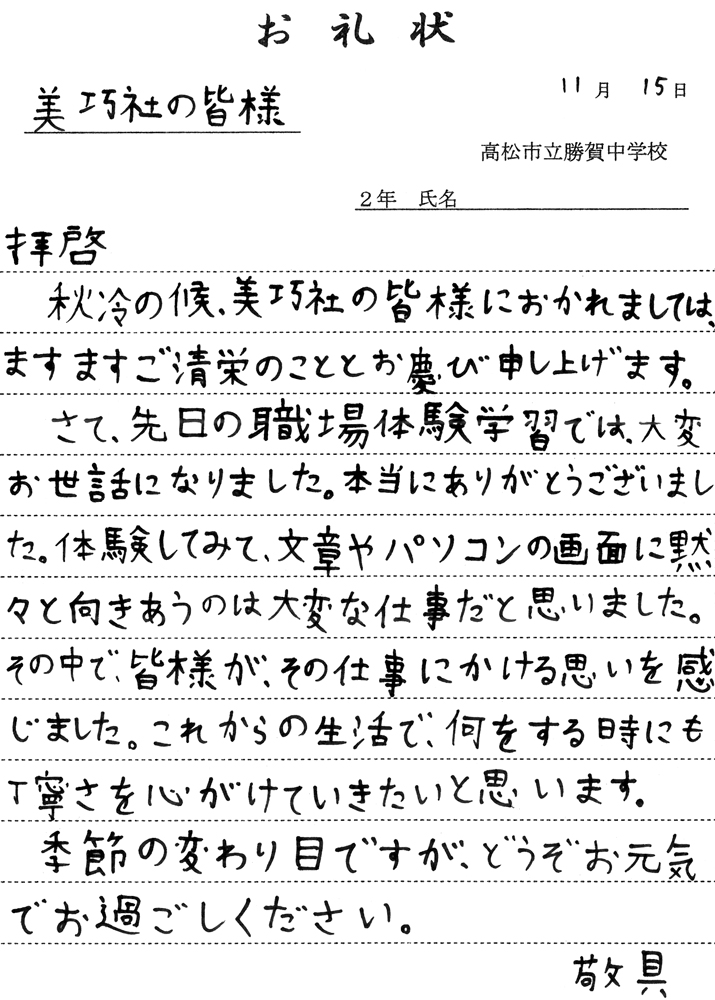 お礼状
11月 15日
美巧社の皆様
高松市立勝賀中学校
２年 氏名
拝啓
秋冷の候、美巧社の皆様におかれましては、
ますますご清栄のこととお慶び申し上げます。
さて、先日の職場体験学習では、大変
お世話になりました。本当にありがとうございまし
た。体験してみて、文章やパソコンの画面に黙
々と向きあうのは大変な仕事だと思いました。
その中で、皆様が、その仕事にかける思いを感
じました。これからの生活で、何をする時にも
丁寧さを心がけていきたいと思います。
季節の変わり目ですが、どうぞお元気
でお過ごしください。
敬具